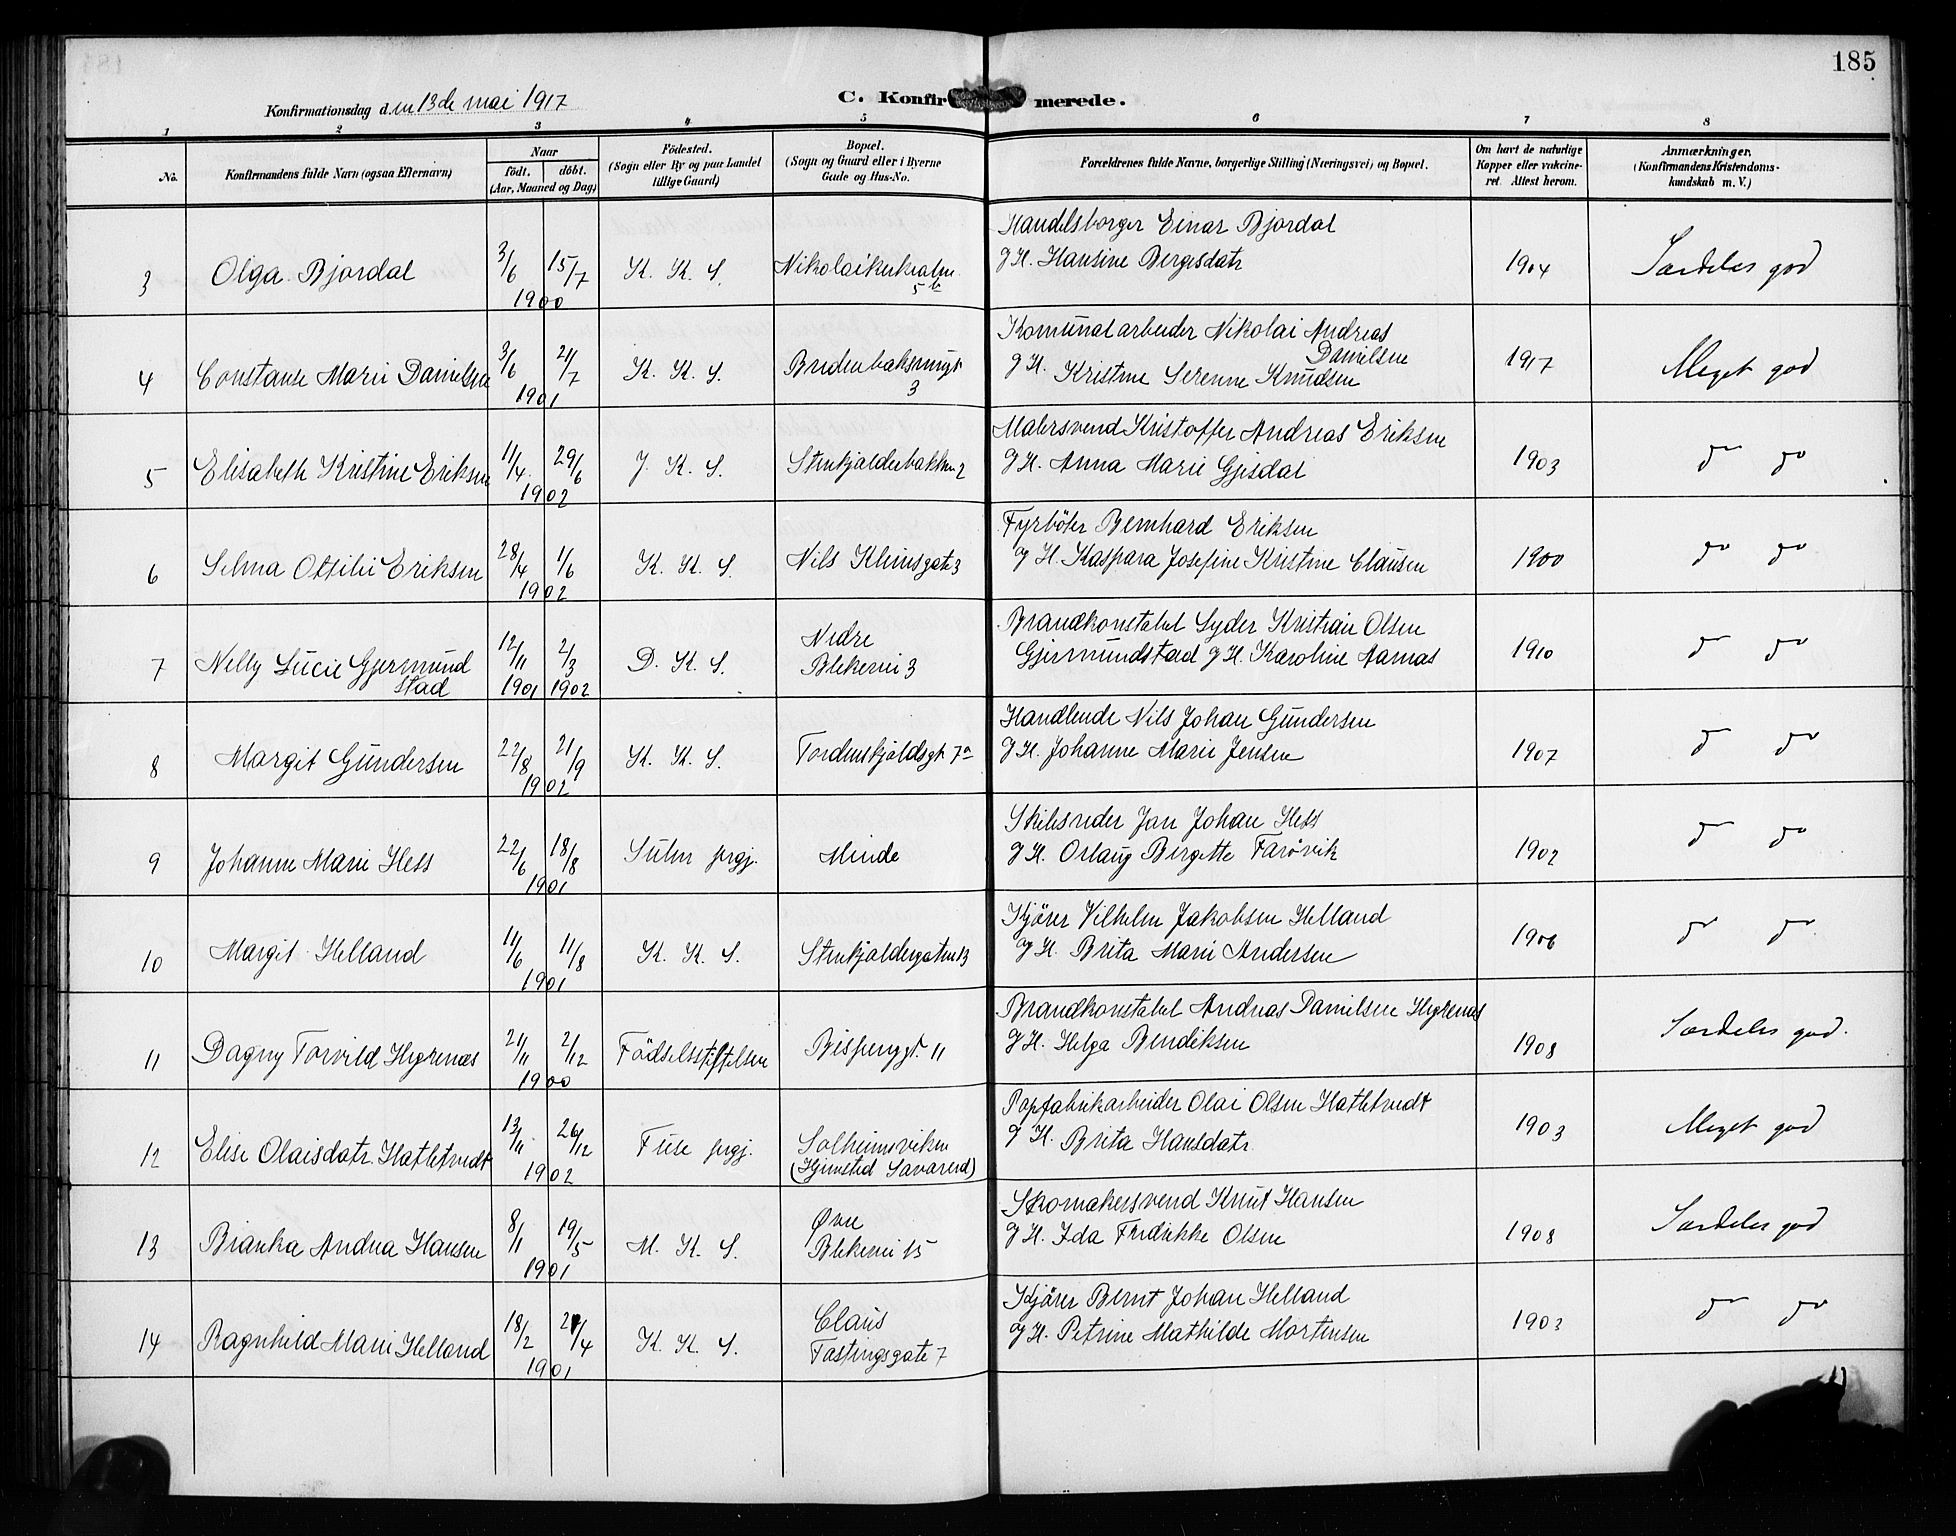 185
Konfirmationsdag den 13de mai 1917
C. Konfirmerede.
1 2 3 4 5 6 7 8
No.
Konfirmandens fulde Navn (ogsaa Efternavn)
Naar
födt. döbt.
(Aar, Maaned og Dag)
Födested.
(Sogn eller By og paa Landet
tillige Gaard)
Bopæl.
(Sogn og Gaard eller i Byerne
Gade og Hus-No.
Forældrenes fulde Navne, borgerlige Stilling (Næringsvei) og Bopæl.
Om havt de naturlige
Kopper eller vakcine-
ret. Attest herom.
Anmærkninger.
(Konfirmandens Kristendoms-
kundskab m. V.)
Handelsborger Einar Bjordal
3 Olga Bjordal 3/6 15/7 K. K. S. Nikolaikirkealm. 5b g H. Hansine Bergesdatr 1904 Særdeles god
1900
Komunalarbeider Nikolai Andreas
Danielsen
4 Constanse Marie Danielsen 3/6 21/7 K. K. S. Bredenbaksmugt 3 g H. Kristine Serenne Knudsen 1917 Meget god
1901
Malersvend Kristoffer Andreas Eriksen
5 Elisabeth Kristine Eriksen 11/4 29/6 J. K. S. Stenkjælderbakken 2 g H. Anna Marie Gjesdal 1903 do do
1902
Fyrböter Bernhard Eriksen
6 Selma Ottilie Eriksen 28/4 1/6 K. K. S. Nils Klimsgate 3 g H. Kaspara Josefine Kristine Clausen 1900 do do
1902
Brandkonstabel Syder Kristian Olsen
7 Nelly Lucie Gjermund
stad 12/11 2/3 D. K. S. Nedre
Blekevei 3 Gjermundstad g H. Karoline Aarnas 1910 do do
1901 1902
Handlende Nils Johan Gundersen
8 Margit Gundersen 22/8 21/9 K. K. S. Tordenskjoldsgt 7a g H. Johanne Marie Jensen 1907 do do
1902
Skibsreder Jan Johan Hess
9 Johanne Marie Hess 22/6 18/8 Sulen prgj. Minde g H. Oslaug Bergette Farövik 1902 do do
1901
Kjörer Vilhelm Jakobsen Helland
10 Margit Helland 11/6 11/8 K. K. S. Stenkjældergaten 13 g H. Brita Marie Andersen 1906 do do
1901
Brandkonstabel Andreas Danielsen Hegrenæs
11 Dagny Torvild Hegrenæs 21/11 2/12 Födselsstiftelsen Bispenggt. 11 g H. Helga Bendiksen 1908 Særdeles god.
1900
Papfabrikarbeider Olai Olsen Hatletvedt
12 Elise Olaisdatr. Hatletvedt 13/11 26/12 Fuse prgj. Solheimsviken
(Hjemsted Sævareid) g H. Brita Hansdatr. 1903 Meget god
1902
Skomakersvend Knut Hansen
13 Bianka Andrea Hansen 8/11 19/5 M. K. S. Øvre
Blekevei 15 g H. Ida Fredrikke Olsen 1908 Særdeles god
1901
Kjörer Bernt Johan Helland
14 Ragnhild Marie Helland 18/2 21/4 K. K. S. Claus
Fastingsgate 7 g H. Petrine Mathilde Mortensen 1903 do do
1901